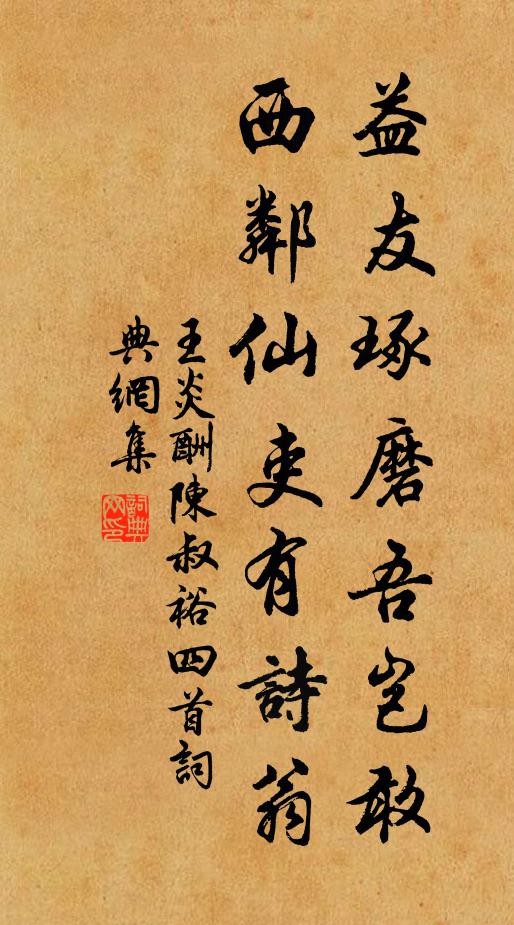 益友琢磨吾豈敢
西鄰仙吏有詩翁
王炎酬陳叔裕四首詞
典網集
詞典網印